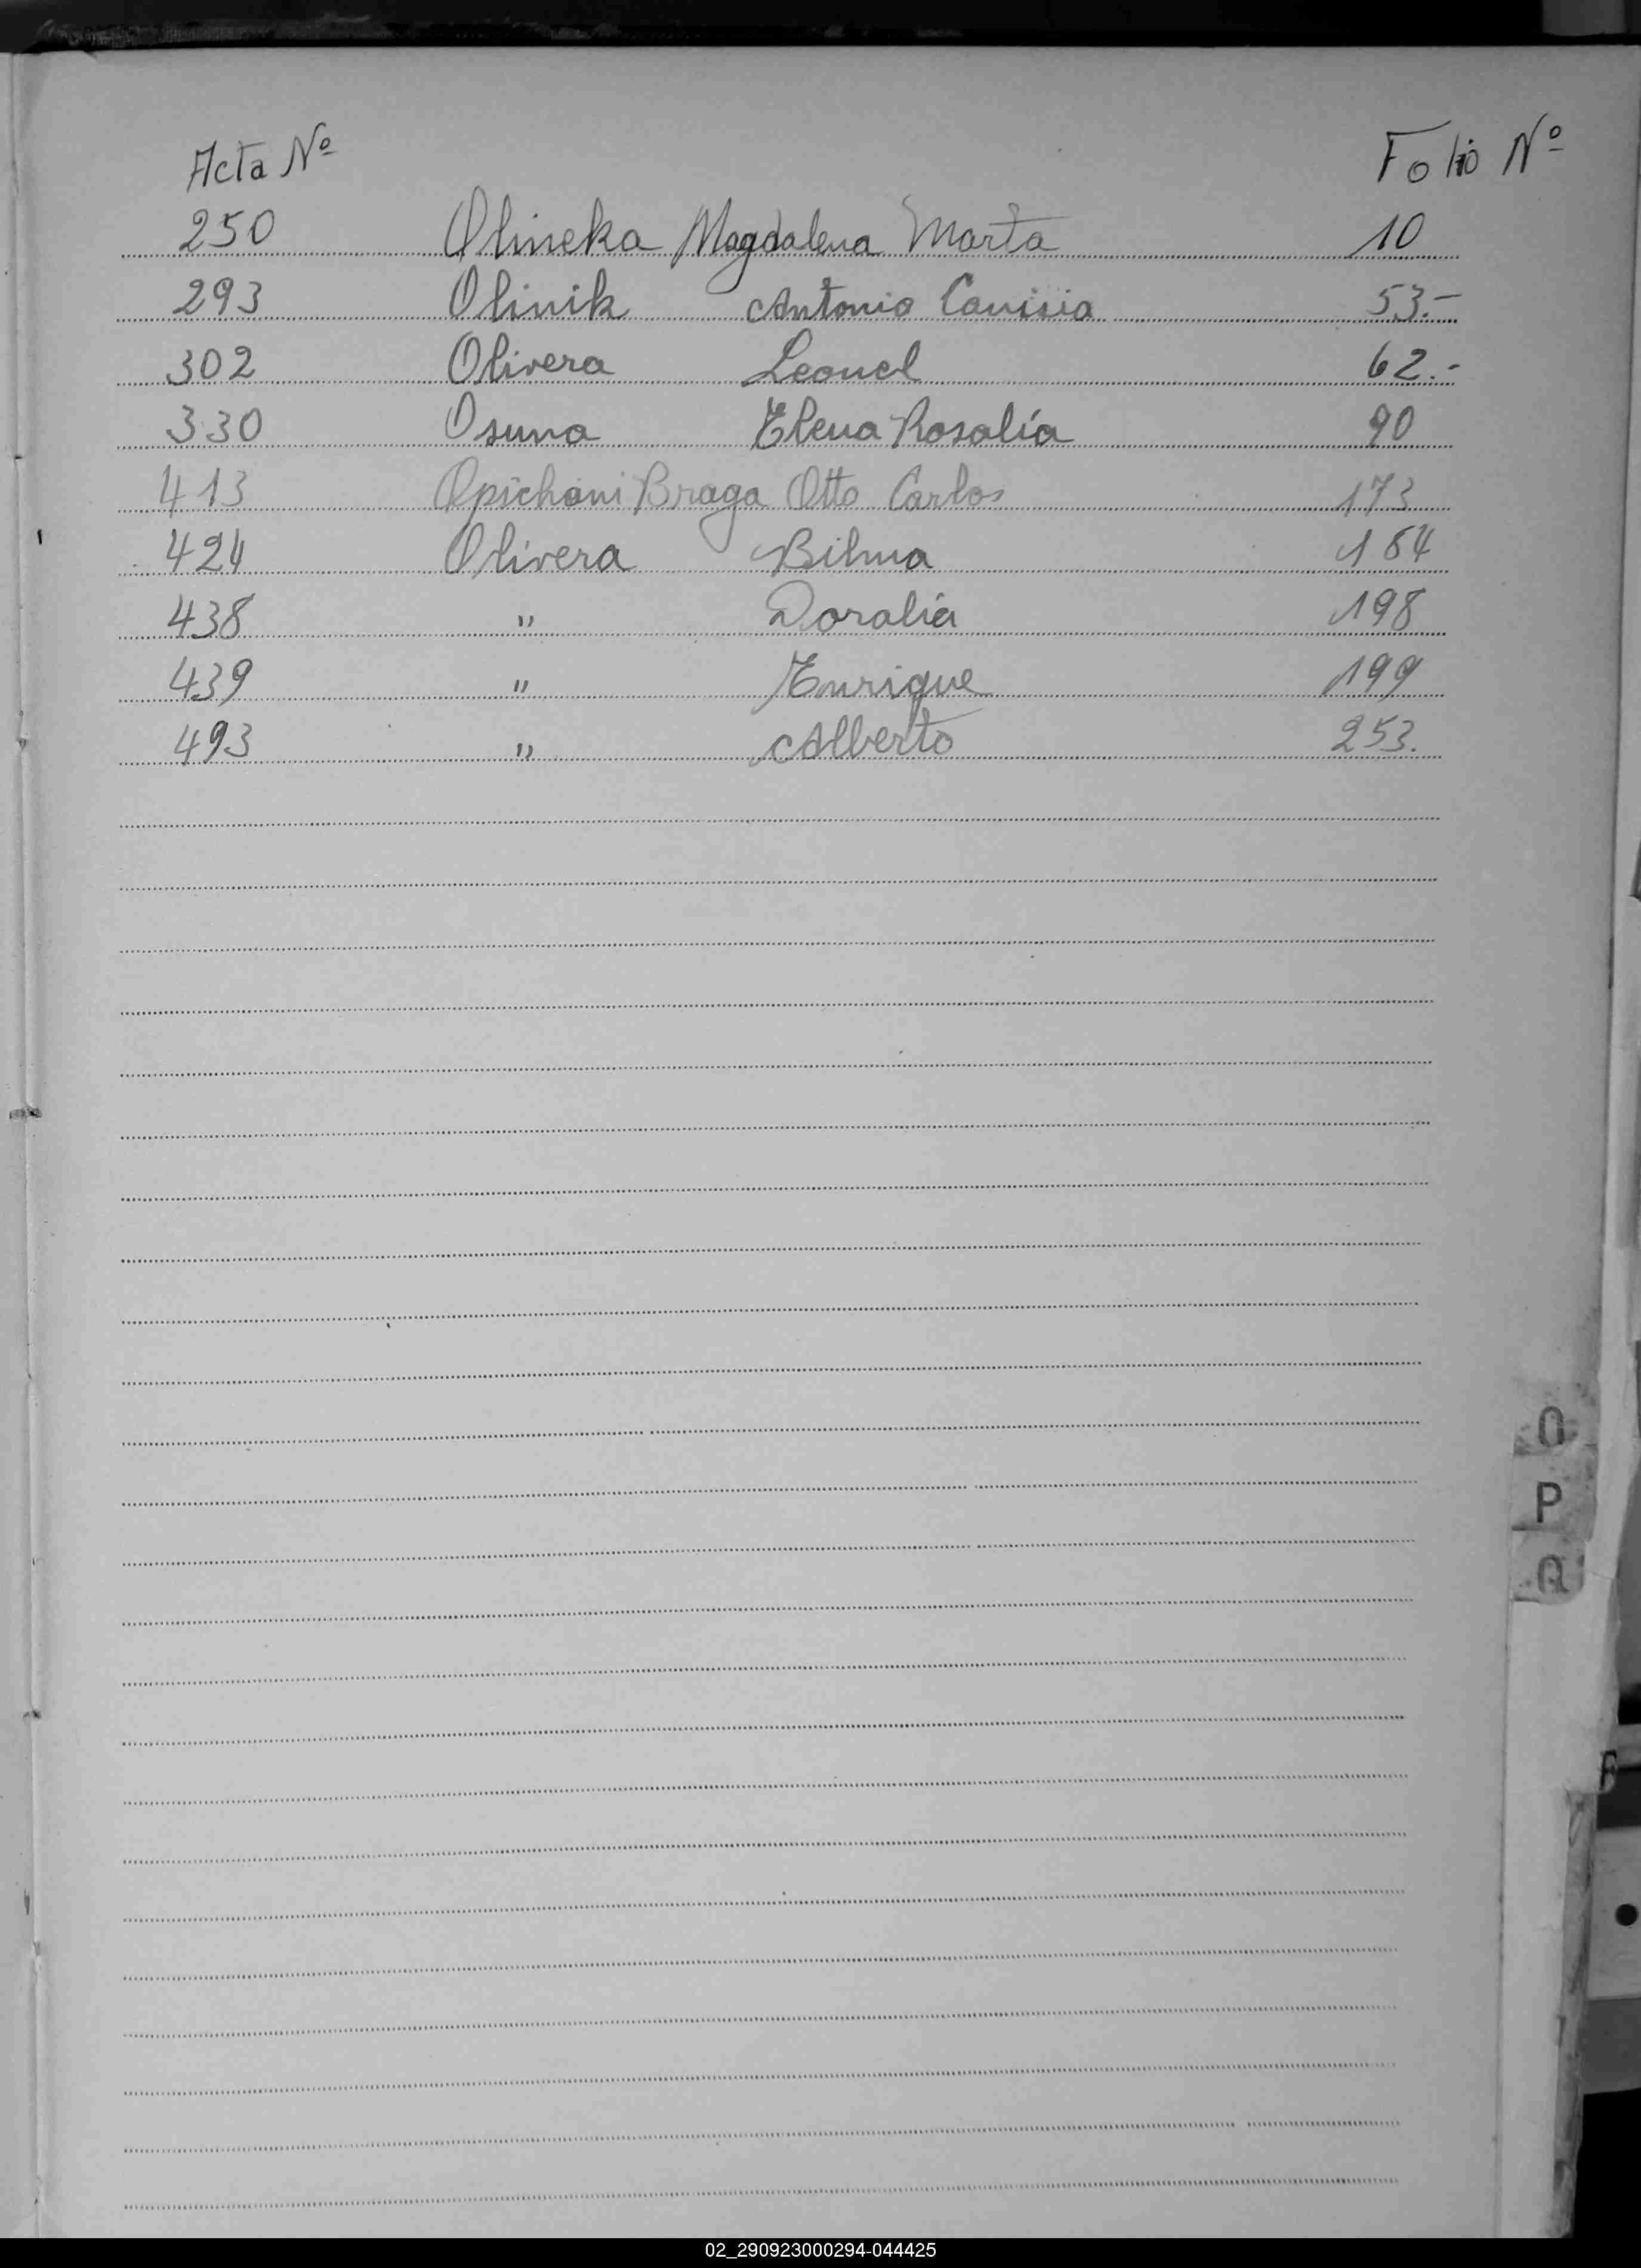 Acta Nº Folio Nº
250 Olineka Magdalena Marta 10
293 Olinik Antonio Canisia 53.-
302 Olivera Leonel 62.-
330 Osuna Elena Rosalía 90
413 Opichani Braga Otto Carlos 173
424 Olivera Bilma 184
438 " Doralia 198
439 " Enrique 199
493 " Alberto 253.
O
P
Q
02_290923000294-044425